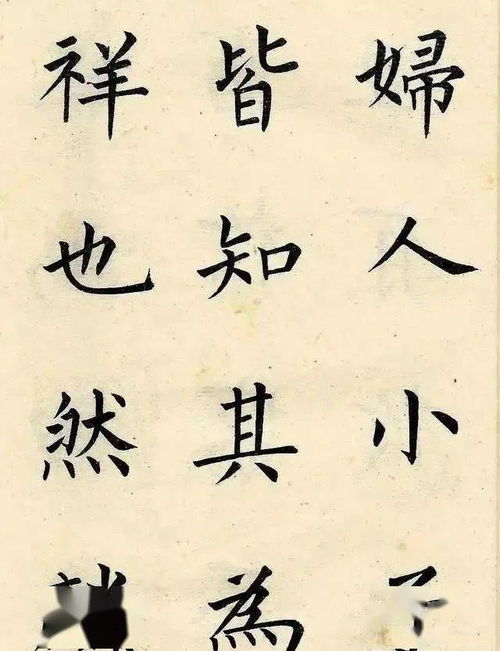 婦人小子
皆知其為
祥也然